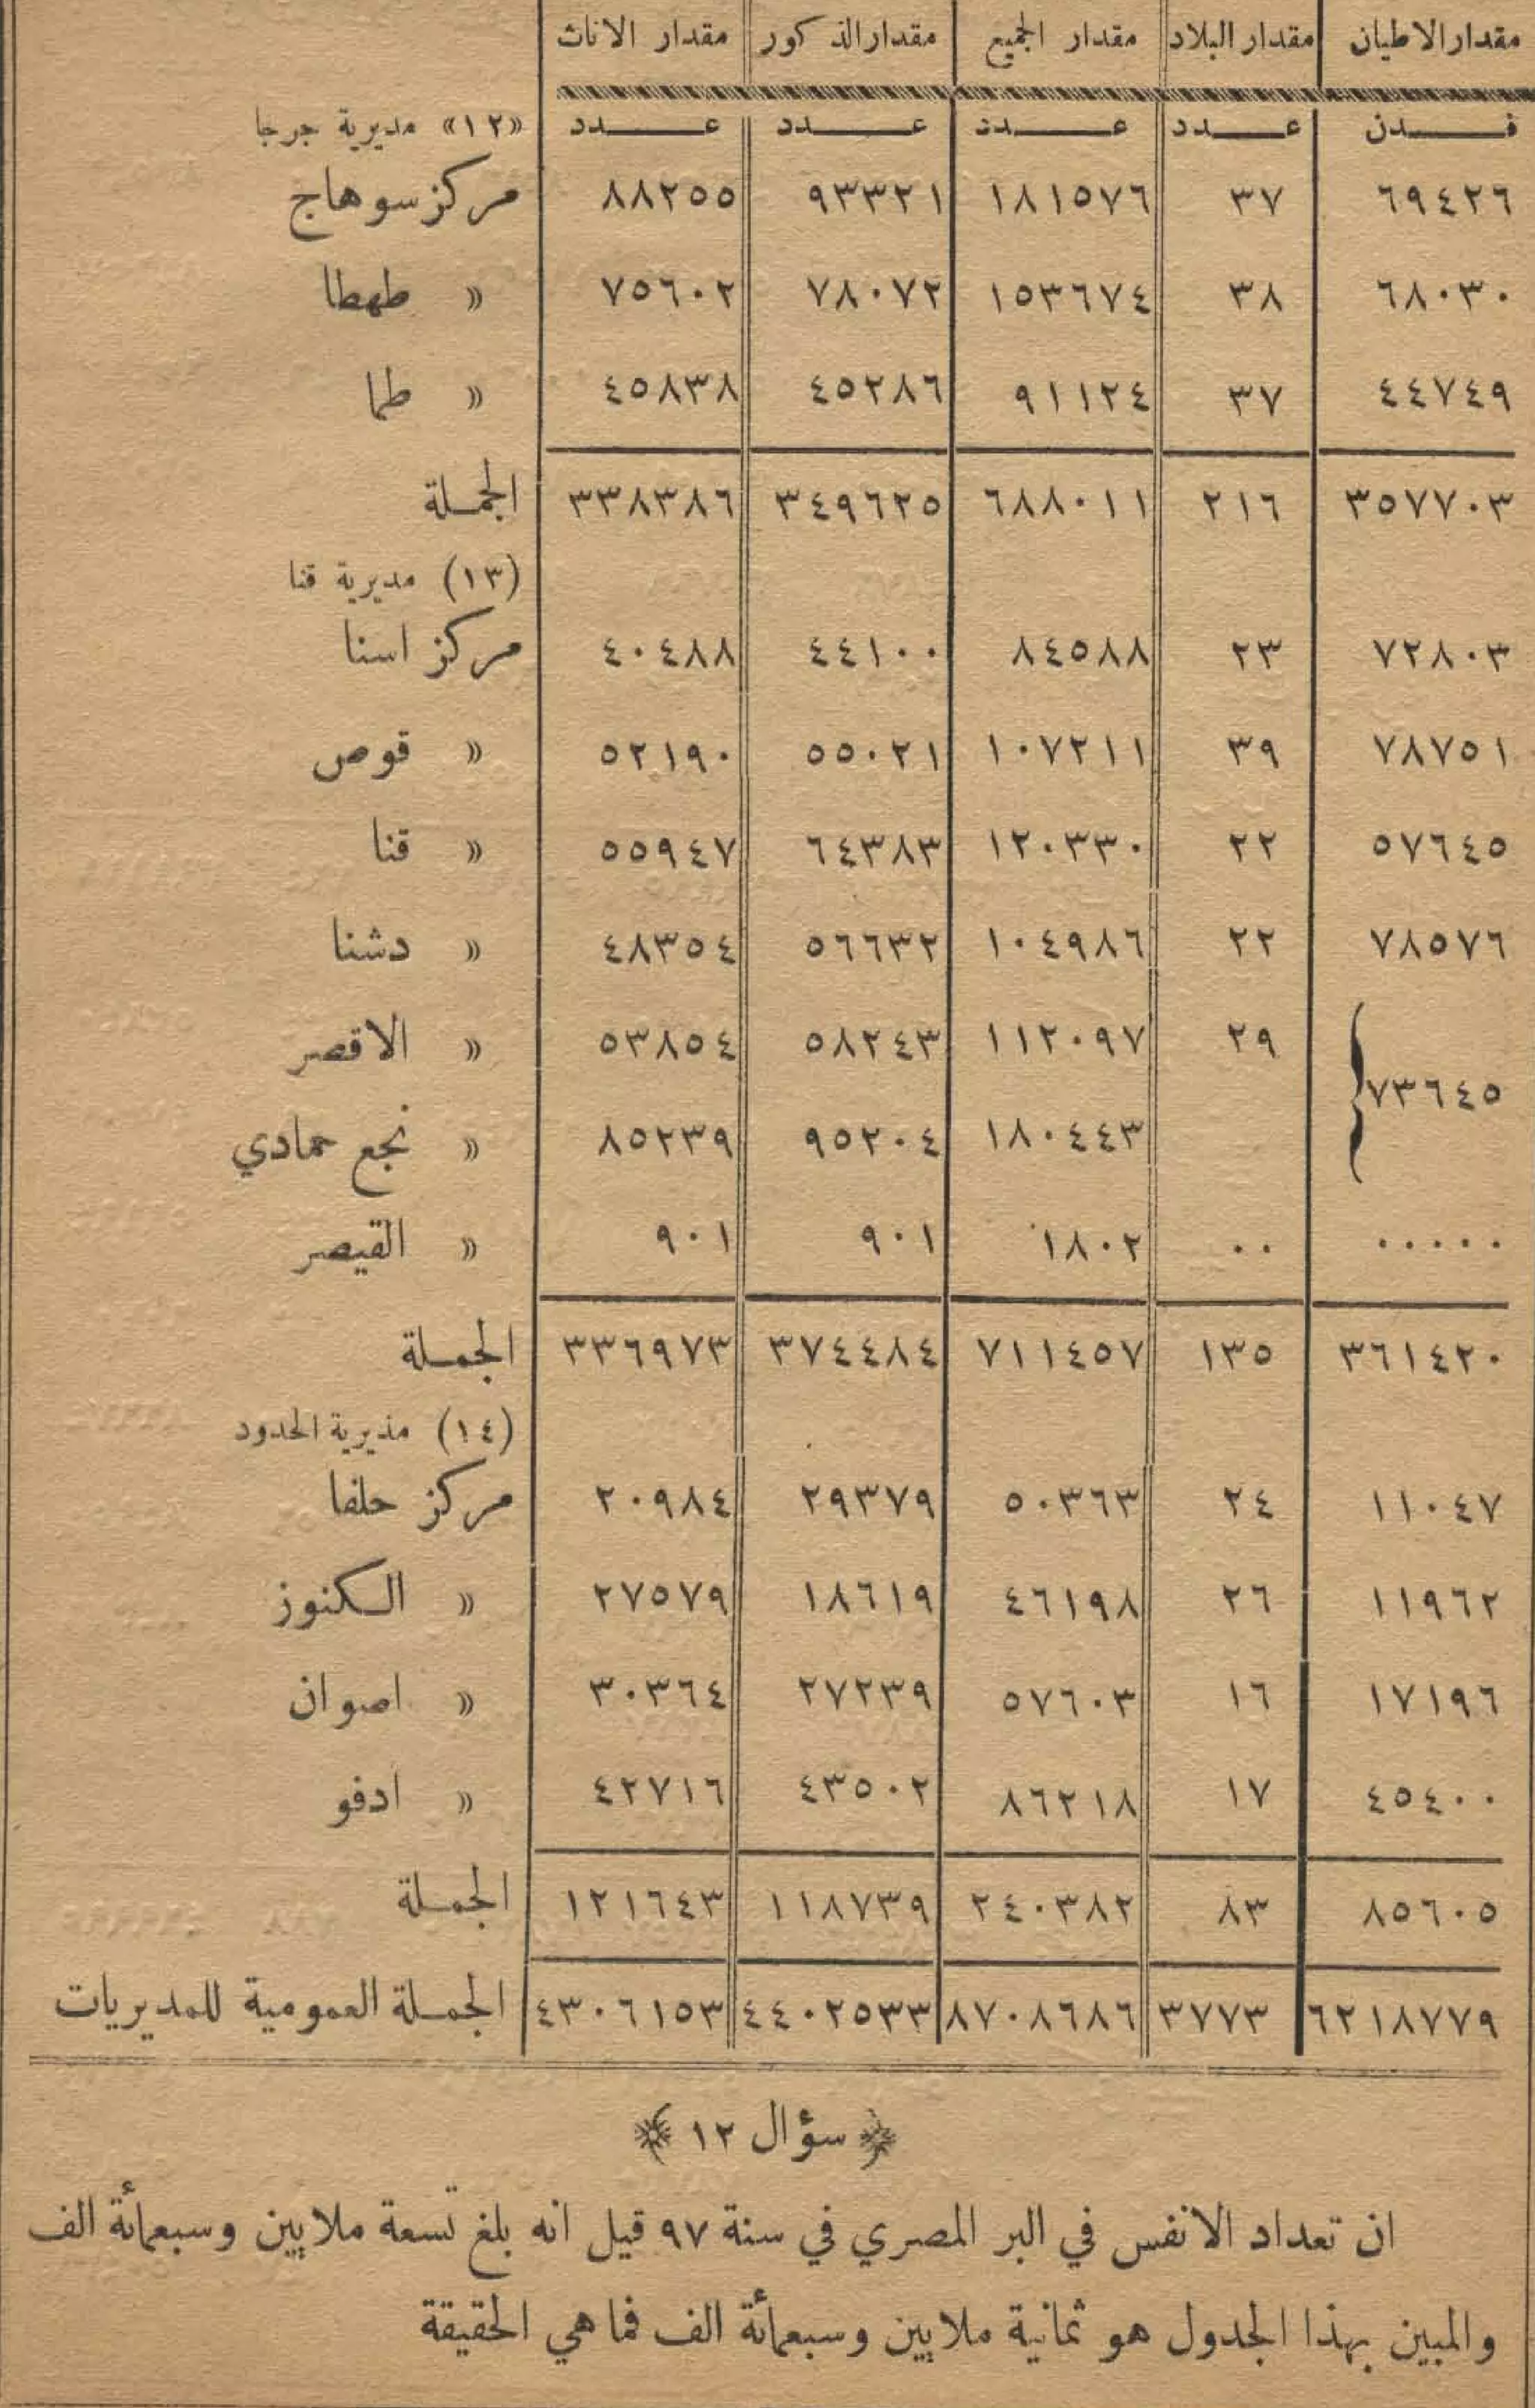 مقدار الاطيان مقدار البلاد مقدار الجميع مقدار الذكور مقدار الاناث
فدن عدد عدد عدد عدد «١٢» مديرية جرجا
٦٩٤٢٦ ٣٧ ١٨١٥٧٦ ٩٣٣٢١ ٨٨٢٥٥ مركز سوهاج
٦٨٠٣٠ ٣٨ ١٥٣٦٧٤ ٧٨٠٧٢ ٧٥٦٠٢ » طهطا
٤٤٧٤٩ ٣٧ ٩١١٢٤ ٤٥٢٨٦ ٤٥٨٣٨ » طما
٣٥٧٧٠٣ ٢١٦ ٦٨٨٠١١ ٣٤٩٦٢٥ ٣٣٨٣٨٦ الجملة
(١٣) مديرية قنا
٧٢٨٠٣ ٢٣ ٨٤٥٨٨ ٤٤١٠٠ ٤٠٤٨٨ مركز اسنا
٧٨٧٥١ ٣٩ ١٠٧٢١١ ٥٥٠٢١ ٥٢١٩٠ » قوص
٥٧٦٤٥ ٢٢ ١٢٠٣٣٠ ٦٤٣٨٣ ٥٥٩٤٧ » قنا
٧٨٥٧٦ ٢٢ ١٠٤٩٨٦ ٥٦٦٣٢ ٤٨٣٥٤ » دشنا
٧٣٦٤٥ ٢٩ ١١٢٠٩٧ ٥٨٢٤٣ ٥٣٨٥٤ » الاقصر
١٨٠٤٤٣ ٩٥٢٠٤ ٨٥٢٣٩ » نجع حمادي
٠٠٠٠٠ ٠٠ ١٨٠٢ ٩٠١ ٩٠١ » القيصر
٣٦١٤٢٠ ١٣٥ ٧١١٤٥٧ ٣٧٤٤٨٤ ٣٣٦٩٧٣ الجملة
(١٤) مذيرية الحدود
١١٠٤٧ ٢٤ ٥٠٣٦٣ ٢٩٣٧٩ ٢٠٩٨٤ مركز حلفا
١١٩٦٢ ٢٦ ٤٦١٩٨ ١٨٦١٩ ٢٧٥٧٩ » الكنوز
١٧١٩٦ ١٦ ٥٧٦٠٣ ٢٧٢٣٩ ٣٠٣٦٤ » اصوان
٤٥٤٠٠ ١٧ ٨٦٢١٨ ٤٣٥٠٢ ٤٢٧١٦ » ادفو
٨٥٦٠٥ ٨٣ ٢٤٠٣٨٢ ١١٨٧٣٩ ١٢١٦٤٣ الجملة
٦٢١٨٧٧٩ ٣٧٧٣ ٨٧٠٨٦٨٦ ٤٤٠٢٥٣٣ ٤٣٠٦١٥٣ الجملة العمومية للمديريات
﴿ سؤال ١٢ ﴾
ان تعداد الانفس في البر المصري في سنة ٩٧ قيل انه بلغ تسعة ملايين وسبعمائة الف
والمبين بهذا الجدول هو ثمانية ملايين وسبعمائة الف فما هي الحقيقة